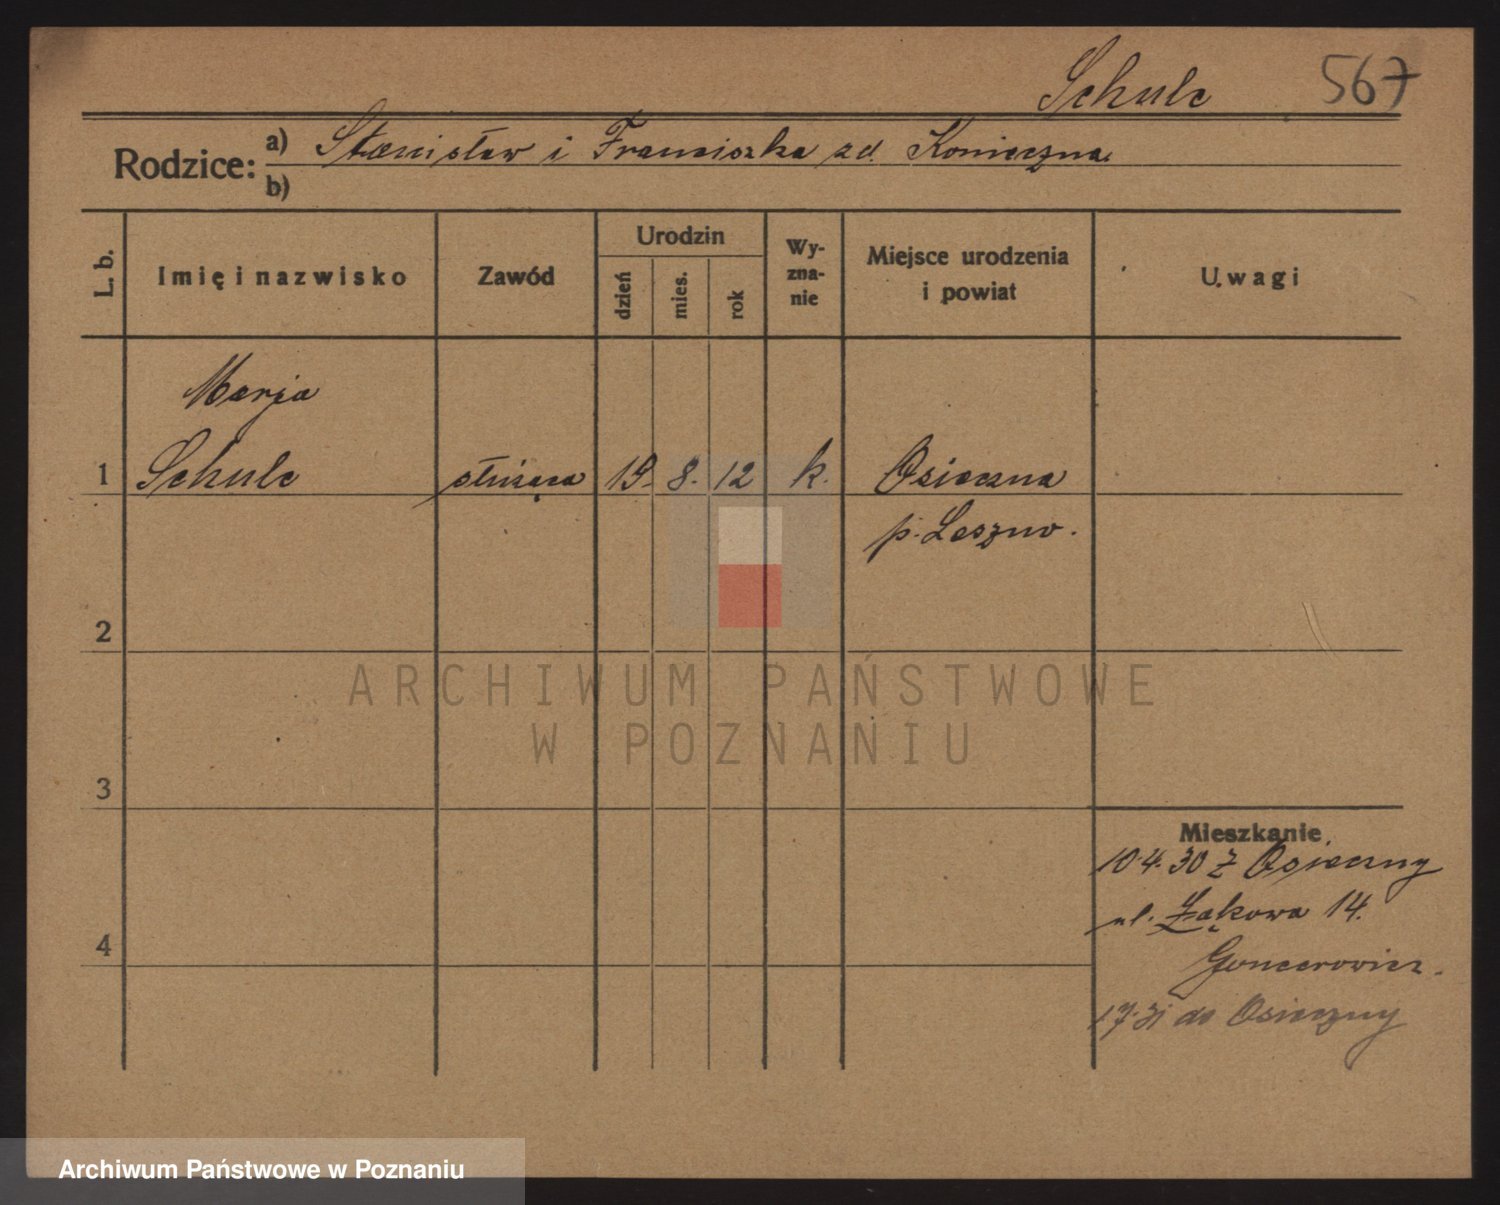 Schulc 567
Rodzice: a) Stanisław i Franciszka zd. Konieczna
b)
L. b. Imię i nazwisko Zawód Urodzin dzień mies. rok Wyzna-nie Miejsce urodzenia i powiat Uwagi
Marja
1 Schulc służąca 19. 8. 12 k. Osieczna
p. Leszno.
2
ARCHIWUM PAŃSTWOWE
W POZNANIU
3
Mieszkanie
10.4.30 z Osieczny
ul. Łąkowa 14.
4
do Osieczny
Archiwum Państwowe w Poznaniu